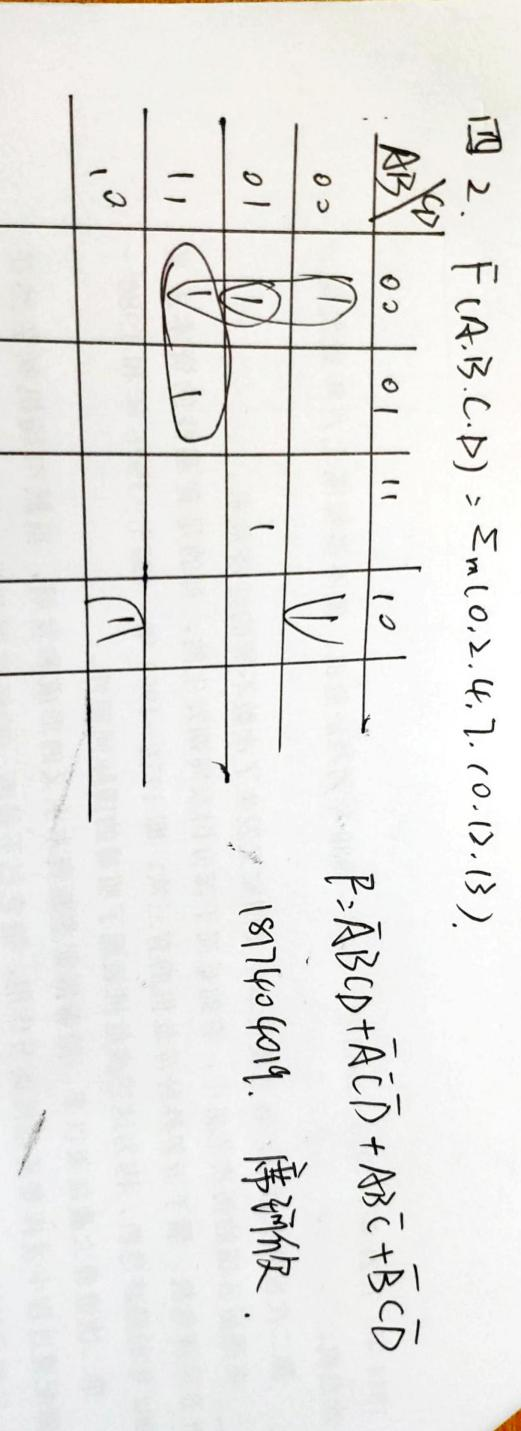 四 2. F(A.B.C.D) = Σm(0.2.4.7.10.12.13).
AB/CD 00 01 11 10
00 1 1
01 1 1
11 1 1
10 1
F=A̅BCD+A̅C̅D̅+ABC̅+B̅CD̅
1817404019.